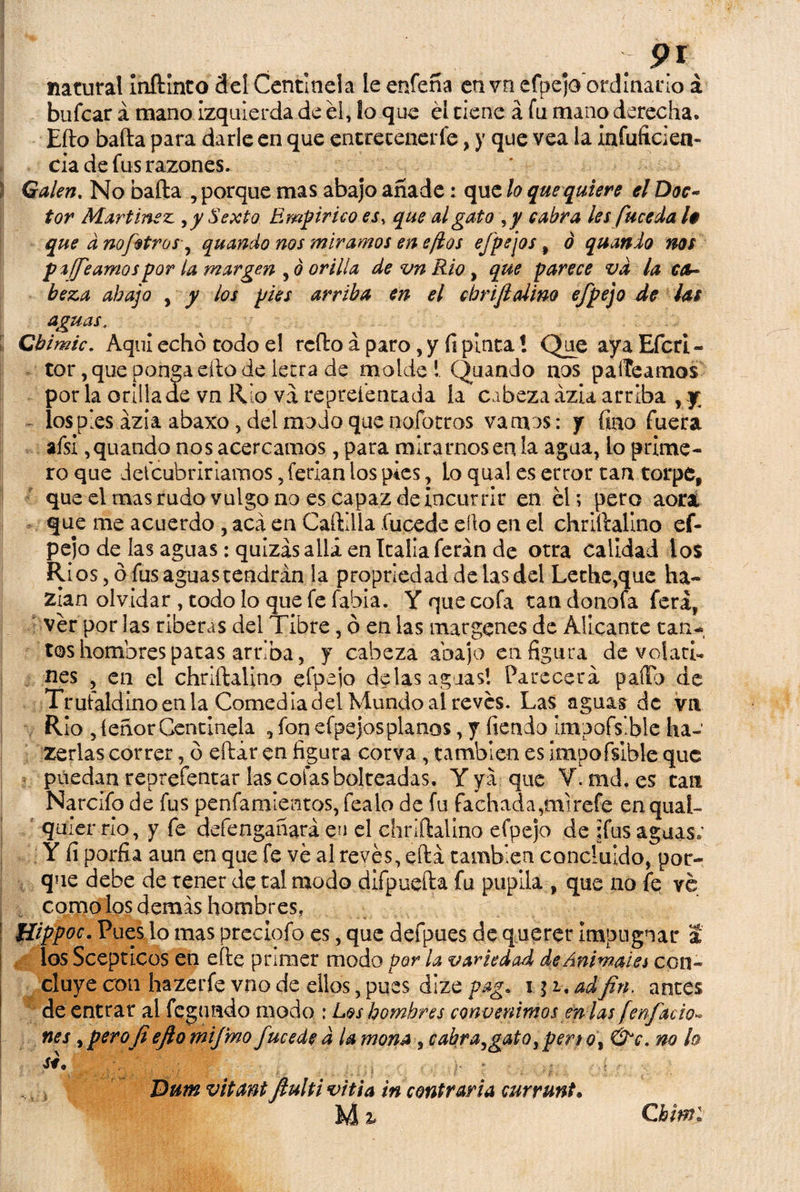 91
natural inſtinto del Centinela le enſeña en vn eſpejo ordinario à
buſcar à mano izquierda de èl, lo que èl tiene à ſu mano derecha.
Eſto baſta para darle en que entretenerſe, y que vea la inſuficien-
cia de ſus razones.
Galen. No baſta, porque mas abajo añade: que lo que quiere el Doc-
tor Martinez, y Sexto Empirico es, que al gato, y cabra les ſuceda lo
que à noſotros, quando nos miramos en eſtos eſpejos, ò quando nos
paſſeamos por la margen, ò orilla de vn Rio, que parece và la ca-
beza abajo, y los pies arriba en el chriſtalino eſpejo de las
aguas.
Chimic. Aqui echò todo el reſto à paro, y ſi pinta! Que aya Eſcri-
tor, que ponga eſto de letra de molde! Quando nos paſſeamos
por la orilla de vn Rio và repreſentada la cabeza àzia arriba, y
los pies àzia abaxo, del modo que noſotros vamos: y ſino fuera
aſsi, quando nos acercamos, para mirarnos en la agua, lo prime-
ro que deſcubririamos, ſerian los pies, lo qual es error tan torpe,
que el mas rudo vulgo no es capaz de incurrir en èl; pero aora
que me acuerdo, acà en Caſtilla ſucede eſto en el chriſtalino eſ-
pejo de las aguas: quizàs allà en Italia ſeràn de otra calidad los
Rios, ò ſus aguas tendràn la propriedad de las del Lethe, que ha-
zian olvidar, todo lo que ſe ſabia. Y que coſa tan donoſa ſerà,
vèr por las riberas del Tibre, ò en las margenes de Alicante tan-
tos hombres patas arriba, y cabeza abajo en figura de volati-
nes, en el chriſtalino eſpejo de las aguas! Parecerà paſſo de
Trufaldino en la Comedia del Mundo al revès. Las aguas de vn
Rio, ſeñor Centinela, ſon eſpejos planos, y ſiendo impoſsible ha-
zerlas correr, ò eſtàr en figura corva, tambien es impoſsible que
puedan repreſentar las coſas bolteadas. Y yà que V. md. es tan
Narciſo de ſus penſamientos, ſealo de ſu fachada, mireſe en qual-
quier rio, y ſe deſengañarà en el chriſtalino eſpejo de ſus aguas.
Y ſi porfia aun en que ſe vè al revès, eſtà tambien concluido, por-
que debe de tener de tal modo diſpueſta ſu pupila, que no ſe vè
como los demàs hombres.
Hippoc. Pues lo mas precioſo es, que deſpues de querer impugnar à
los Scepticos en eſte primer modo por la variedad de Animales con-
cluye con hazerſe vno de ellos, pues dize pag. 132. ad fin. antes
de entrar al ſegundo modo: Los hombres convenimos en las ſenſacio-
nes, pero ſi eſto miſmo ſucede à la mona, cabra, gato, perro, &c. no lo
sè.
Dum vitant ſtulti vitia in contraria currunt.
M 2
Chimi